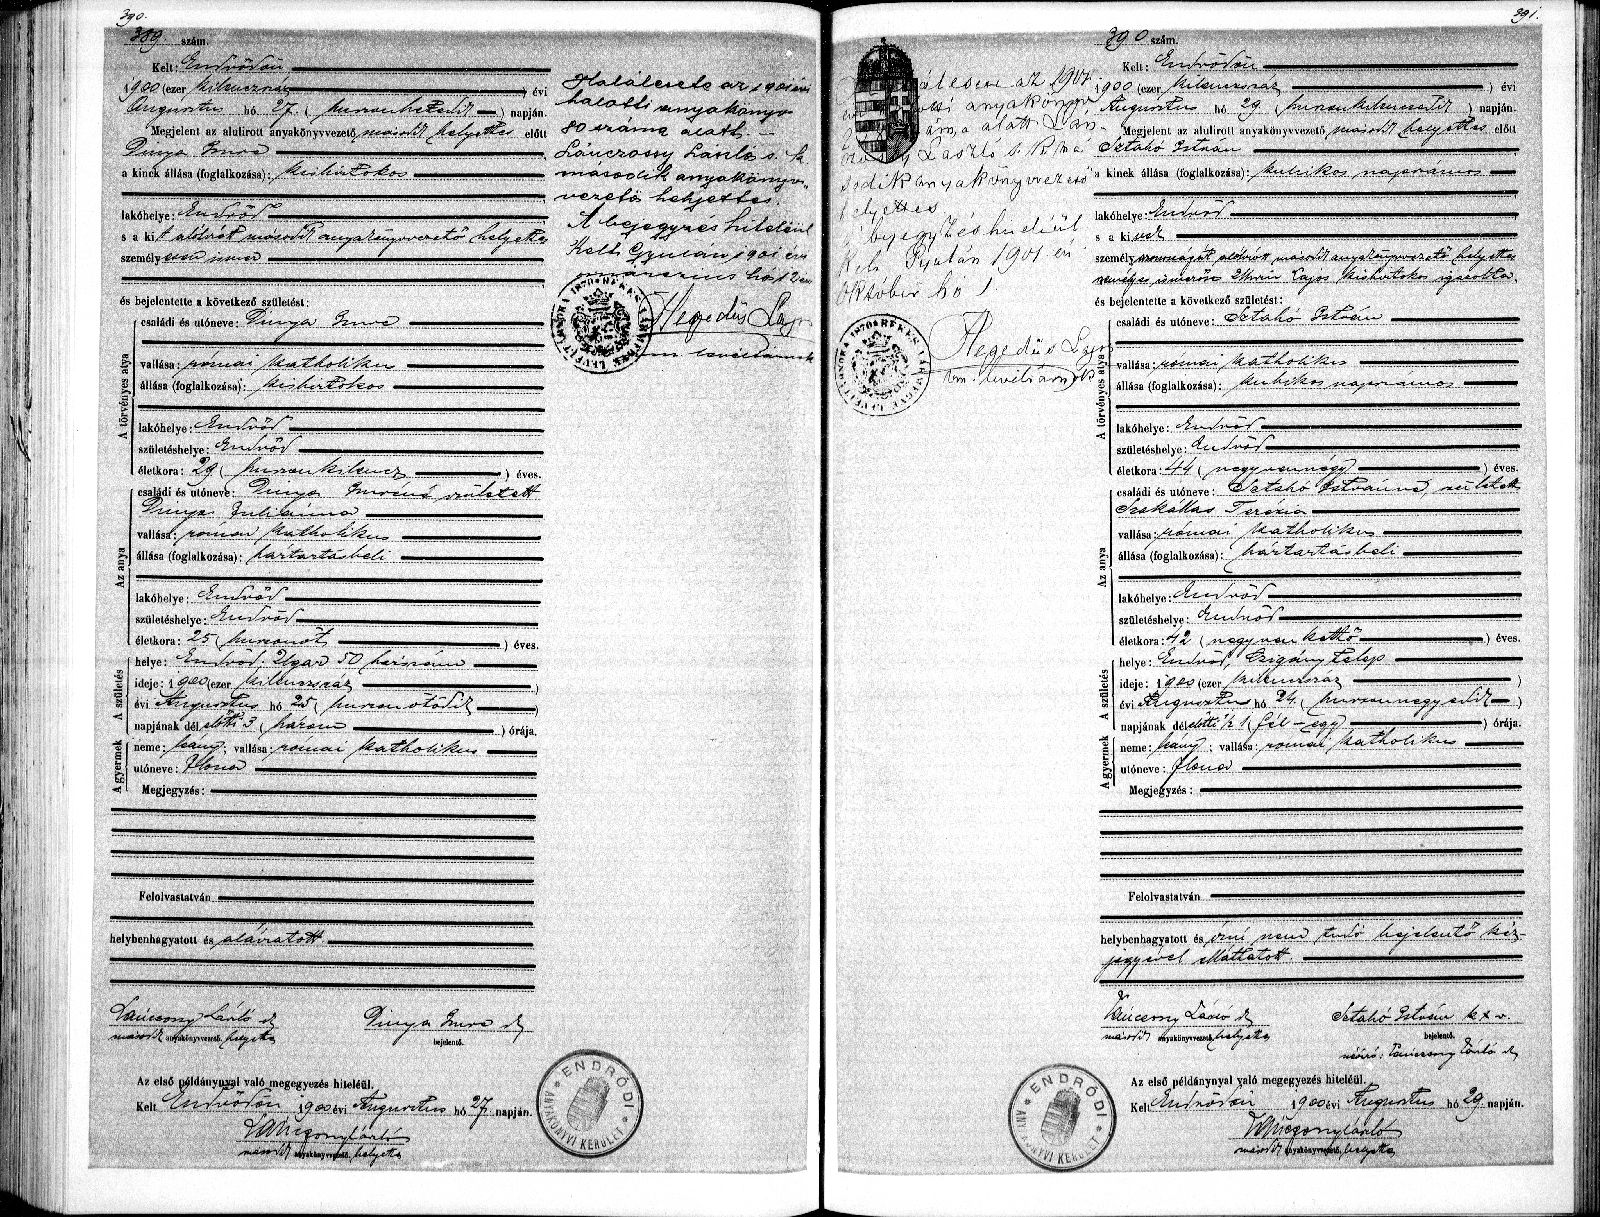 390.
389. szám.
Kelt: Endrődön
1900 (ezer kilenczszáz ) évi
Augusztus hó 27. ( huszonhetedik ) napján.
Megjelent az alulirott anyakönyvvezető, második helyettes előtt
Dinya Imre
a kinek állása (foglalkozása): kisbirtokos
lakóhelye: Endrőd
s a kit alólírt második anyakönyvvezető helyettes
személyesen ismer
és bejelentette a következő születést:
A törvényes atya
családi és utóneve: Dinya Imre
vallása: római katholikus
állása (foglalkozása): kisbirtokos
lakóhelye: Endrőd
születéshelye: Endrőd
életkora: 29 ( huszonkilencz ) éves.
Az anya
családi és utóneve: Dinya Imréné született
Dinya Julianna
vallása: római katholikus
állása (foglalkozása): háztartásbeli
lakóhelye: Endrőd
születéshelye: Endrőd
életkora: 25 ( huszonöt ) éves.
A születés
helye: Endrőd, Ugar 50 házszám
ideje: 1900 (ezer kilenczszáz )
évi Augusztus hó 25 ( huszonötödik )
napjának dél előtti 3 ( három ) órája.
A gyermek
neme: leány; vallása: római katholikus
utóneve: Ilona
Megjegyzés:
Felolvastatván
helybenhagyatott és aláiratott
Lánczony László sk
másodk anyakönyvvezető, helyettes
Dinya Imre sk
bejelentő.
Az első példánynyal való megegyezés hiteléül.
Kelt Endrődön 1900 évi Augusztus hó 27 napján.
Lánczony László
másodk anyakönyvvezető, helyettes
ENDRŐDI ANYAKÖNYVI KERÜLET
Halálesete az 1901 évi
halotti anyakönyv
80 száma alatt. —
László s. k.
második anyakönyv-
vezető helyettes.
A bejegyzés hiteléül
Kelt Gyulán 1901 évi
márczius hó 12 én
Hegedüs Lajos
vm levéltárnok
BÉKÉS VÁRMEGYE LEVÉLTÁRNOKA 1870
391.
390 szám.
Kelt: Endrődön
1900 (ezer kilenczszáz ) évi
Augusztus hó 29 ( huszonkilenczedik ) napján.
Megjelent az alulirott anyakönyvvezető, másodk helyettes előtt
Sztahó István
a kinek állása (foglalkozása): kubikos napszámos
lakóhelye: Endrőd
s a kinek
személyazonosságát alólírt másodk anyakönyvvezető helyettes
Lajos kisbirtokos igazolta.
és bejelentette a következő születést:
A törvényes atya
családi és utóneve: Sztahó István
vallása: római katholikus
állása (foglalkozása): kubikos napszámos
lakóhelye: Endrőd
születéshelye: Endrőd
életkora: 44 ( negyvennégy ) éves.
Az anya
családi és utóneve: Sztahó Istvánné, született
Szakállas Terézia
vallása: római katholikus
állása (foglalkozása): háztartásbeli
lakóhelye: Endrőd
születéshelye: Endrőd
életkora: 42 ( negyvenkettő ) éves.
A születés
helye: Endrőd, Czigány telep
ideje: 1900 (ezer kilenczszáz )
évi Augusztus hó 24. ( huszonnegyedik )
napjának dél előtti ½ 1 ( fél – egy ) órája.
A gyermek
neme: leány; vallása: római katholikus
utóneve: Ilona
Megjegyzés:
Felolvastatván
helybenhagyatott és írni nem tudó bejelentő kéz-
jegyével elláttatott.
Lánczony László sk
másodk anyakönyvvezető, helyettes
Sztahó István k x v.
bejelentő.
névíró: Lánczony László sk
Az első példánynyal való megegyezés hiteléül.
Kelt Endrődön 1900 évi Augusztus hó 29 napján.
Lánczony László
másodk anyakönyvvezető, helyettes
ENDRŐDI ANYAKÖNYVI KERÜLET
az 1901
anyakönyv
alatt
László s. k. má
sodik anyakönyvvezető
helyettes
bejegyzés hiteléül
Kelt Gyulán 1901 évi
október hó 1.
Hegedüs Lajos
vm. levéltárnok
BÉKÉS VÁRMEGYE LEVÉLTÁRNOKA 1870